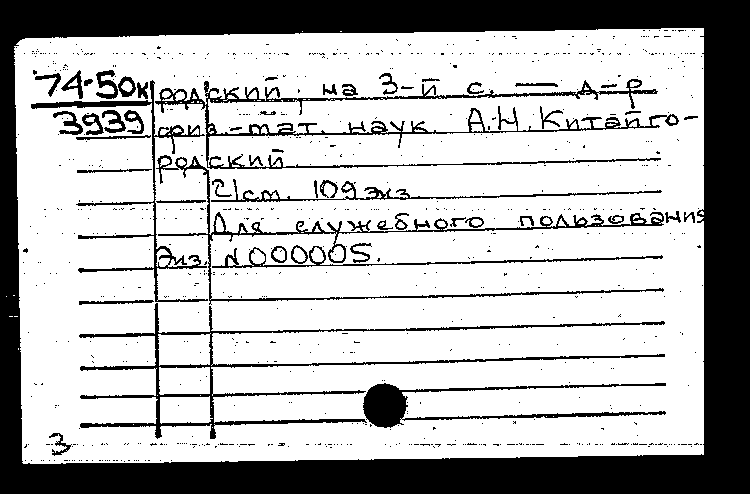 74-50к родский; на 3-й с. — д-р
3939 физ.-мат. наук. А.Н. Китайго-
родский
21 см. 109 экз
Для служебного пользования
Экз. N 000005.
3